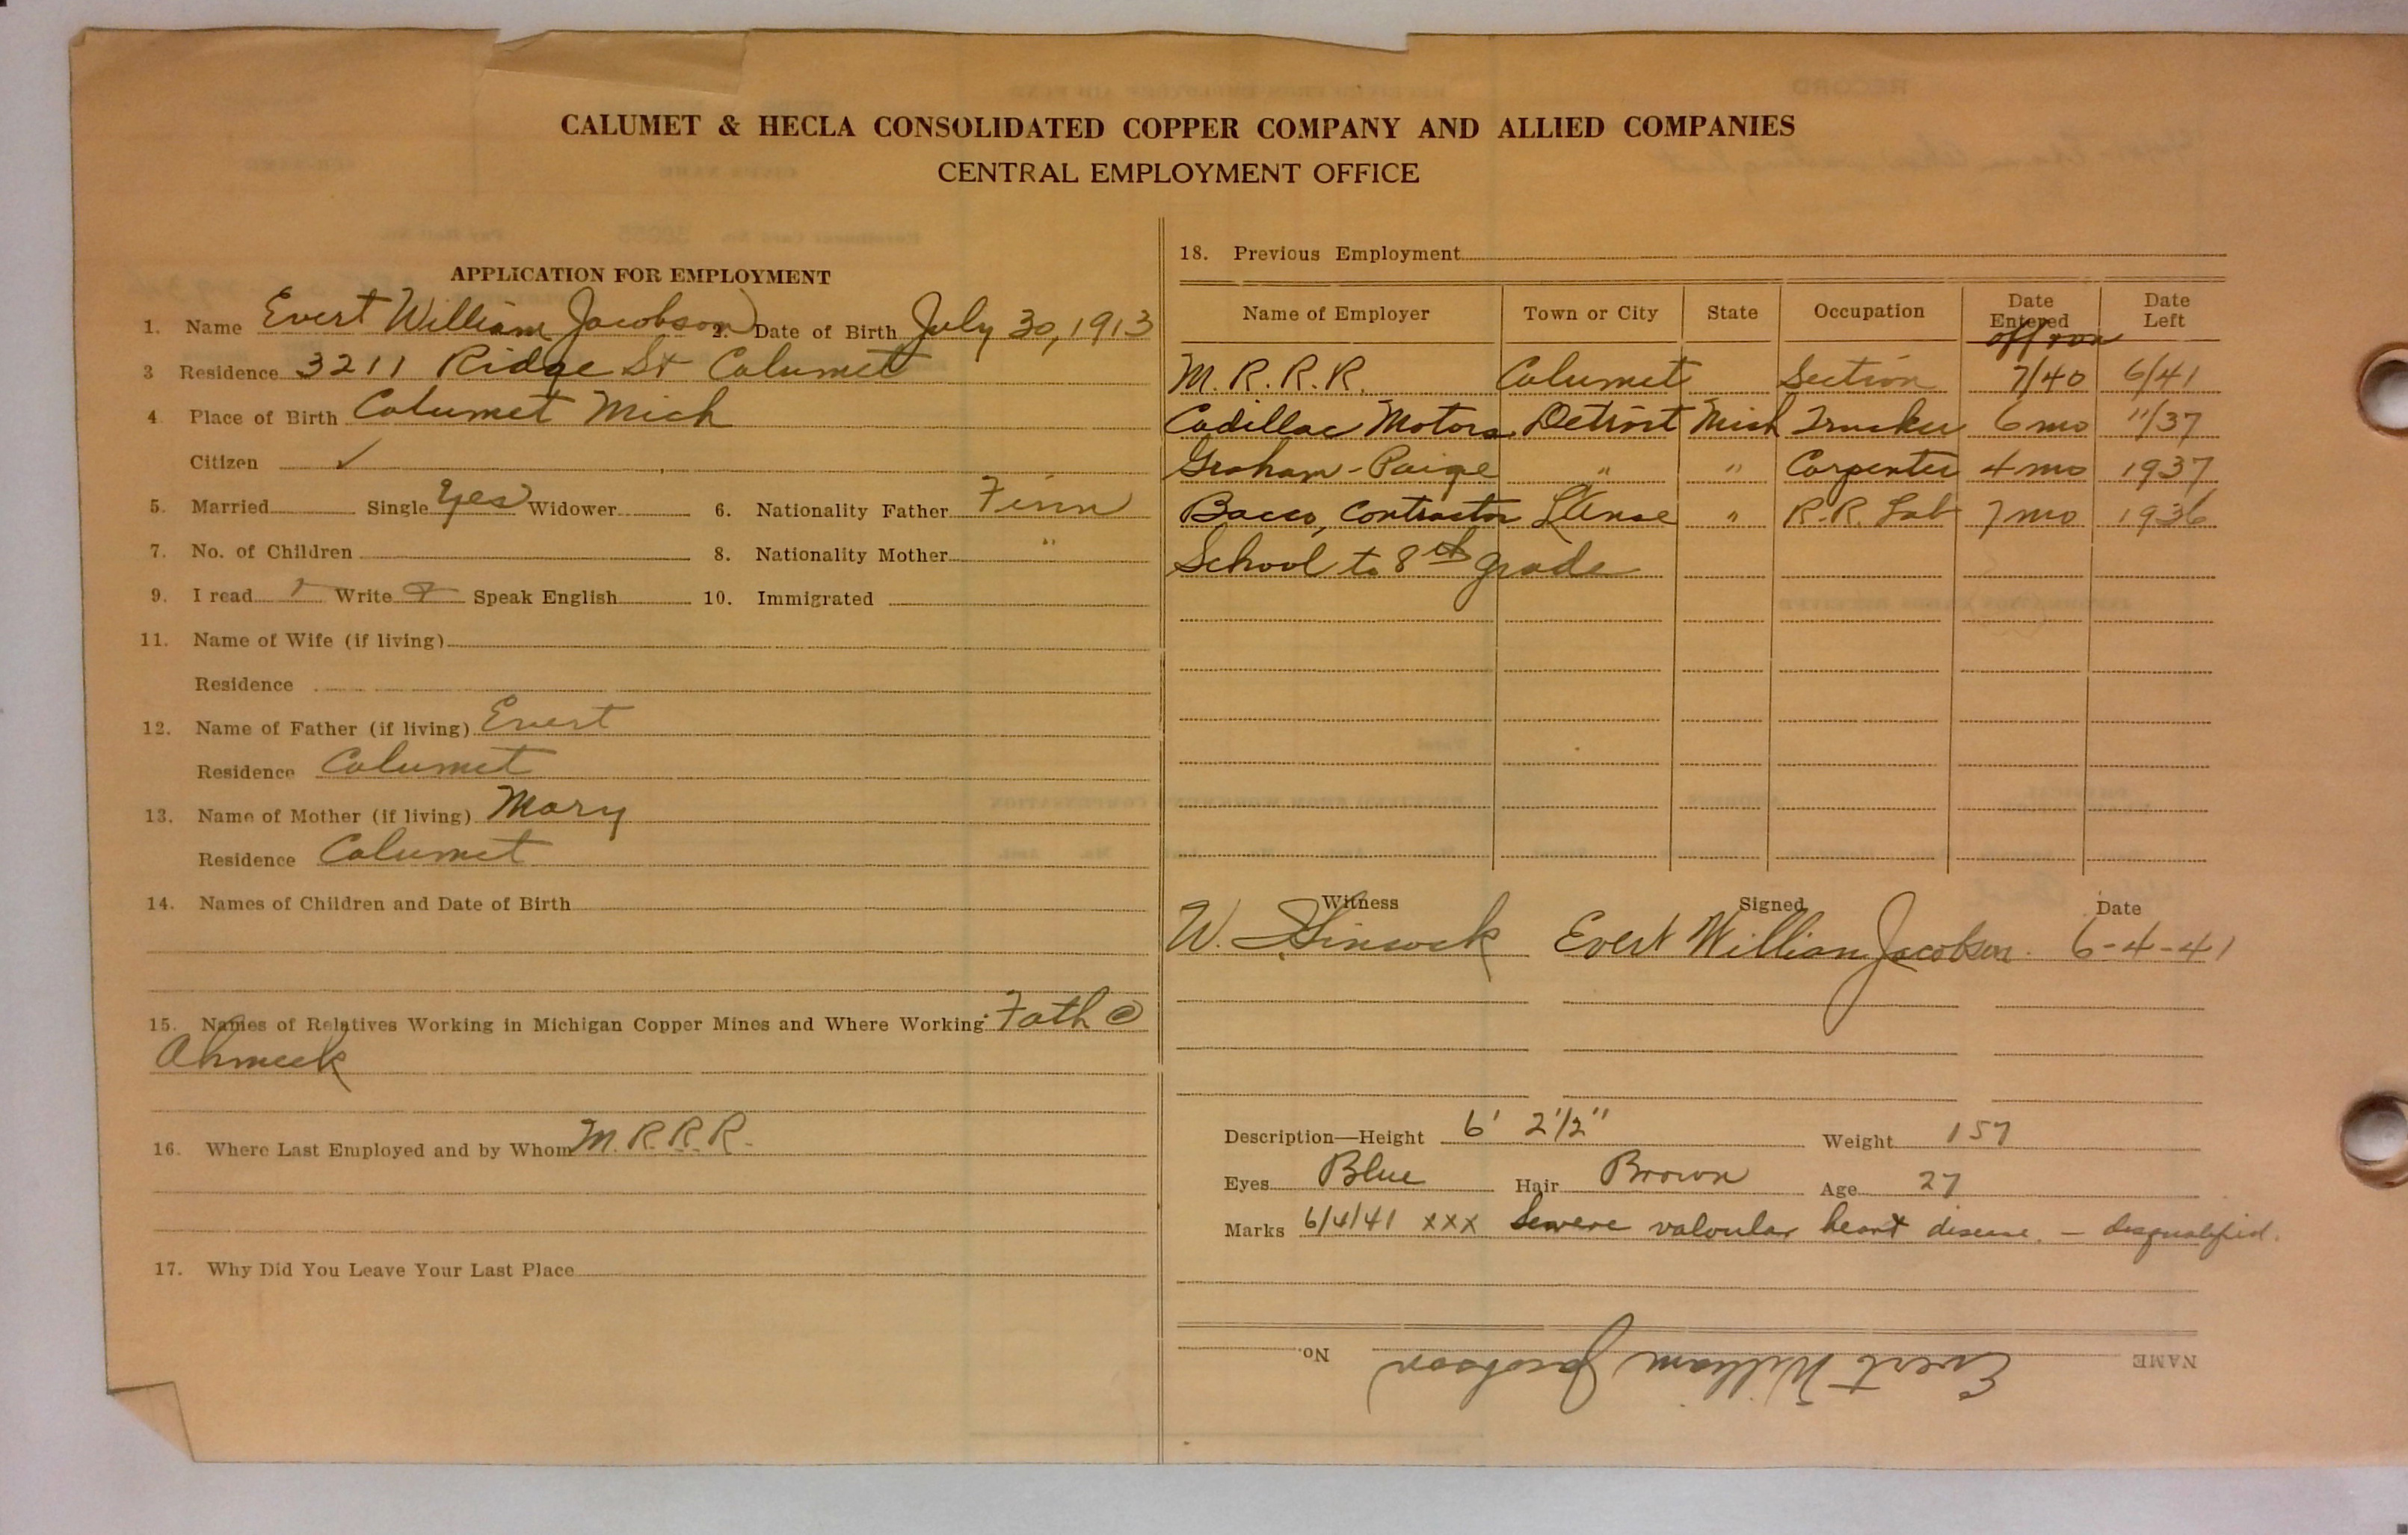 CALUMET & HECLA CONSOLIDATED COPPER COMPANY AND ALLIED COMPANIES
CENTRAL EMPLOYMENT OFFICE
APPLICATION FOR EMPLOYMENT
1. Name Evert William Jacobson 2. Date of Birth July 30, 1913
3 Residence 3211 Ridge St Calumet
4. Place of Birth Calumet Mich
Citizen ✓
5. Married Single Yes Widower 6. Nationality Father Finn
7. No. of Children 8. Nationality Mother "
9. I read Write Speak English 10. Immigrated
11. Name of Wife (if living)
Residence
12. Name of Father (if living) Evert
Residence Calumet
13. Name of Mother (if living) Mary
Residence Calumet
14. Names of Children and Date of Birth
15. Names of Relatives Working in Michigan Copper Mines and Where Working: Fath @
Ahmeek
16. Where Last Employed and by Whom M.R.R.R.
17. Why Did You Leave Your Last Place
18. Previous Employment
Name of Employer Town or City State Occupation Date Entered Date Left
off & on
M. R. R. R. Calumet Section 7/40 6/41
Cadillac Motors Detroit Mich Trucker 6 mo 11/37
Graham-Paige " " Carpenter 4 mo 1937
Bacco, Contractor L'Anse " R.R. Lab 7 mo 1936
School to 8th grade
Witness Signed Date
W. Evert William Jacobson. 6-4-41
Description—Height 6' 2 1/2" Weight 157
Eyes Blue Hair Brown Age 27
Marks 6/4/41 xxx Severe valvular heart disease. — disqualified.
NAME Evert William Jacobson No.